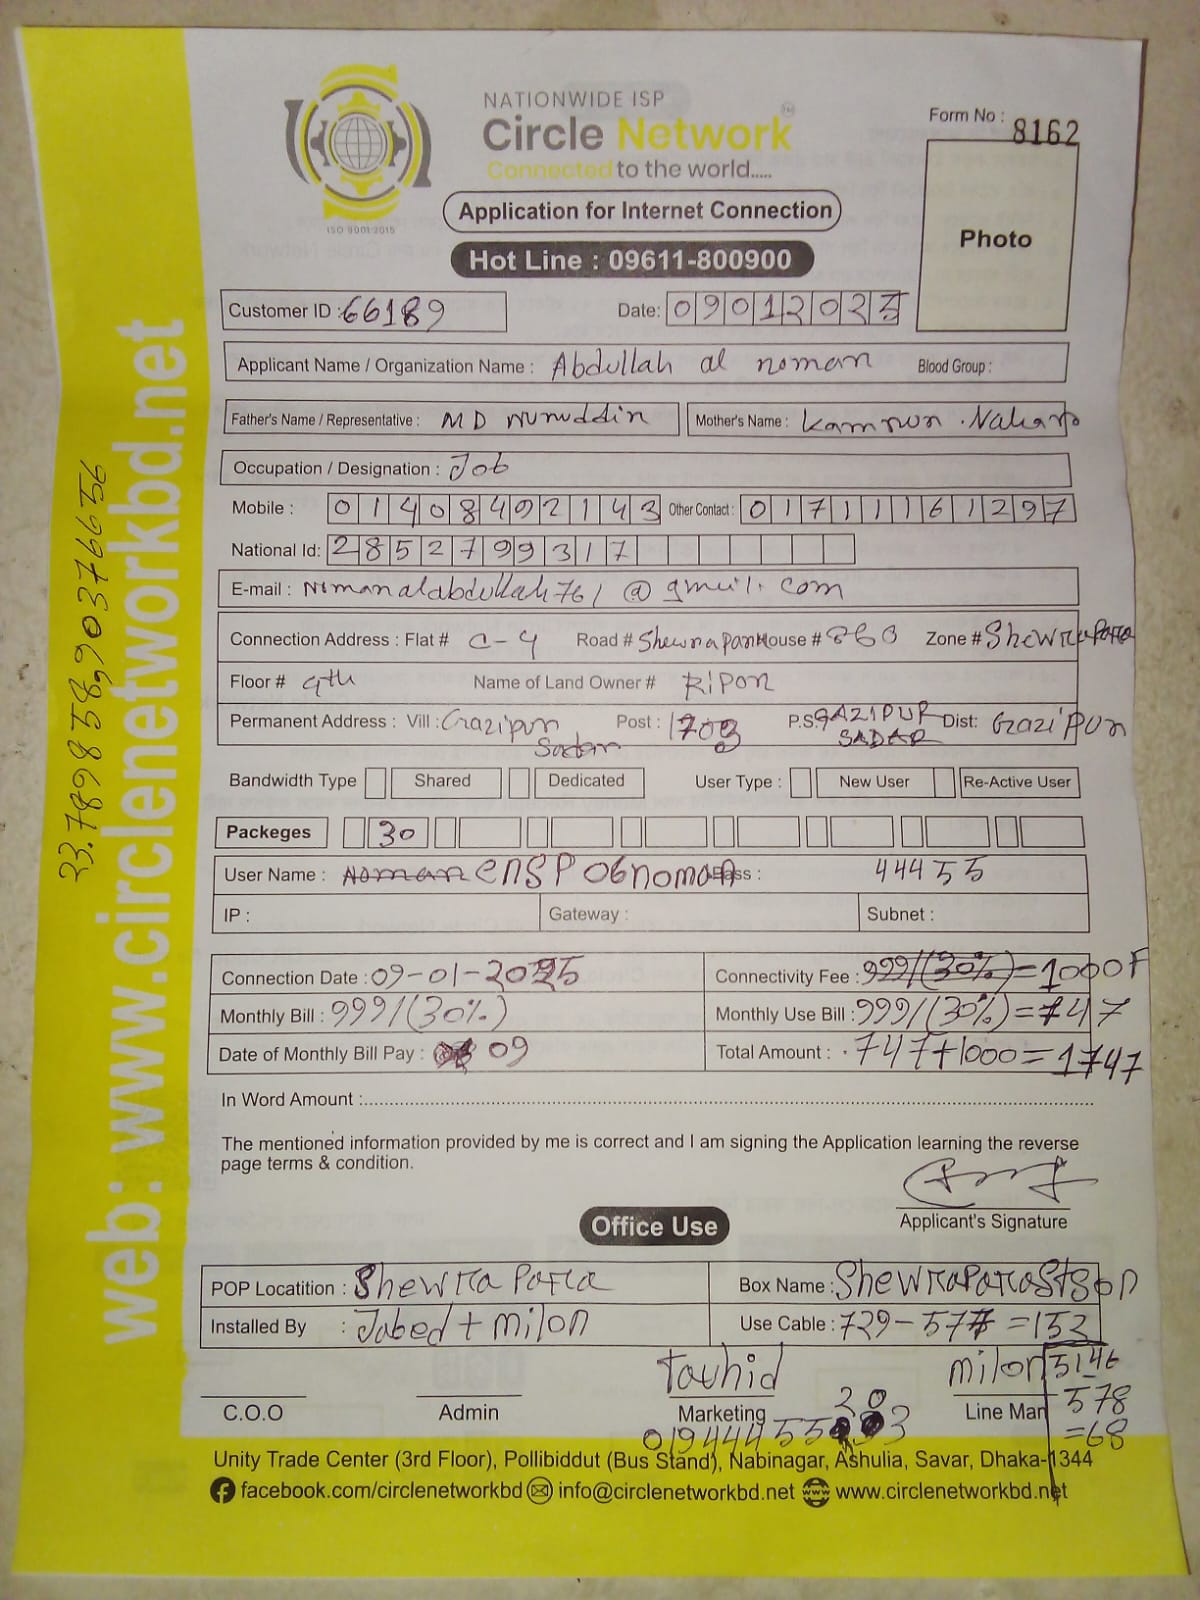 NATIONWIDE ISP
Circle Network
Connected to the world.....
ISO 9001:2015
Form No : 8162
Application for Internet Connection
Hot Line : 09611-800900
Photo
Customer ID : 66189 Date: 09012025
Applicant Name / Organization Name : Abdullah al noman Blood Group :
Father's Name / Representative : MD nuruddin Mother's Name : Kamrun Nahar
Occupation / Designation : Job
Mobile : 01408492143 Other Contact : 01711161297
National Id: 2852799317
E-mail : nomanalabdullah761@gmail.com
Connection Address : Flat # C-4 Road # Shewrapara House # 860 Zone # Shewrapara
Floor # 4th Name of Land Owner # Ripon
Permanent Address : Vill : Gazipur Sadar Post : 1703 P.S: GAZIPUR SADAR Dist: Gazipur
Bandwidth Type Shared Dedicated User Type : New User Re-Active User
Packeges 30
User Name : Noman CNSP06noman Pass : 44455
IP : Gateway : Subnet :
Connection Date : 09-01-2025 Connectivity Fee : 999/(30%) = 1000F
Monthly Bill : 999/(30%) Monthly Use Bill : 999/(30%) = 747
Date of Monthly Bill Pay : 09 Total Amount : 747+1000=1747
In Word Amount :
The mentioned information provided by me is correct and I am signing the Application learning the reverse
page terms & condition.
Applicant's Signature
Office Use
POP Locatition : Shewra Para Box Name : ShewraPara
Installed By : Jabed + milon Use Cable : 729-577 =152
Tawhid milon 5146
C.O.O Admin Marketing Line Man 578
=68
Unity Trade Center (3rd Floor), Pollibiddut (Bus Stand), Nabinagar, Ashulia, Savar, Dhaka-1344
facebook.com/circlenetworkbd info@circlenetworkbd.net www.circlenetworkbd.net
web: www.circlenetworkbd.net
23.789858,90.3766656